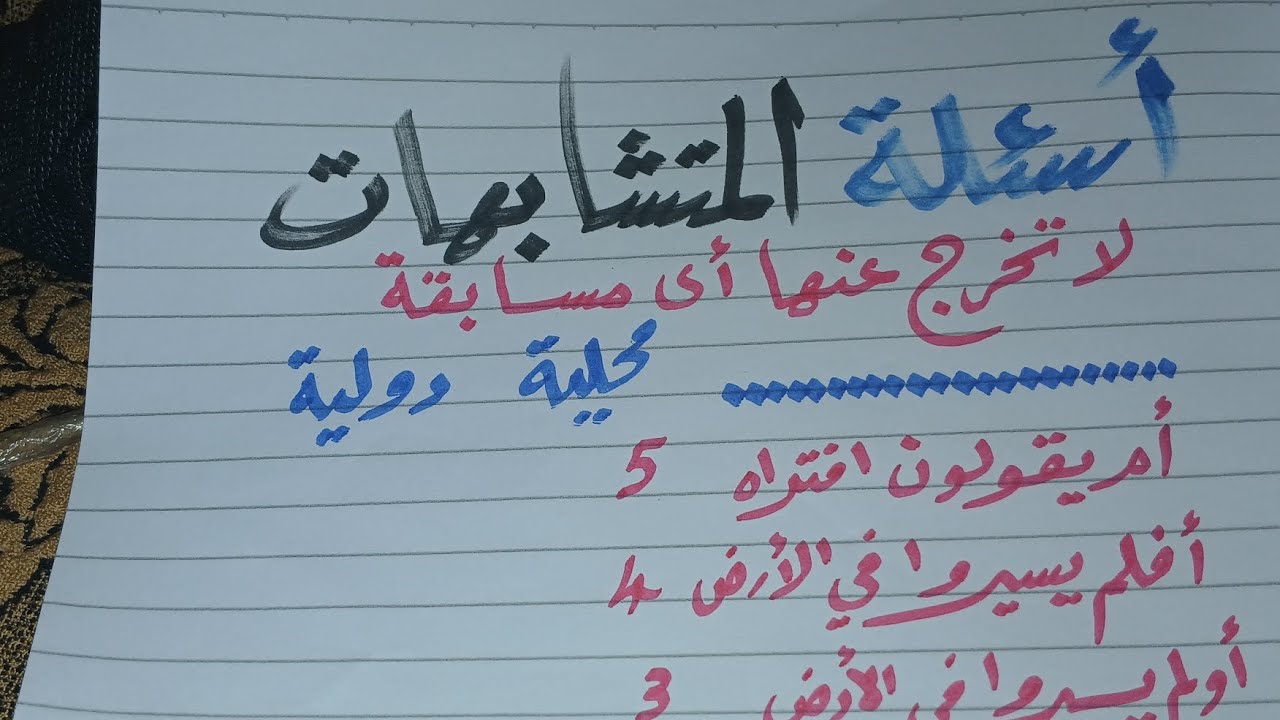 أسئلة المتشابهات
لا تخرج عنها أى مسابقة
محلية دولية
أم يقولون افتراه 5
أفلم يسيروا في الأرض 4
أولم يسيروا في الأرض 3